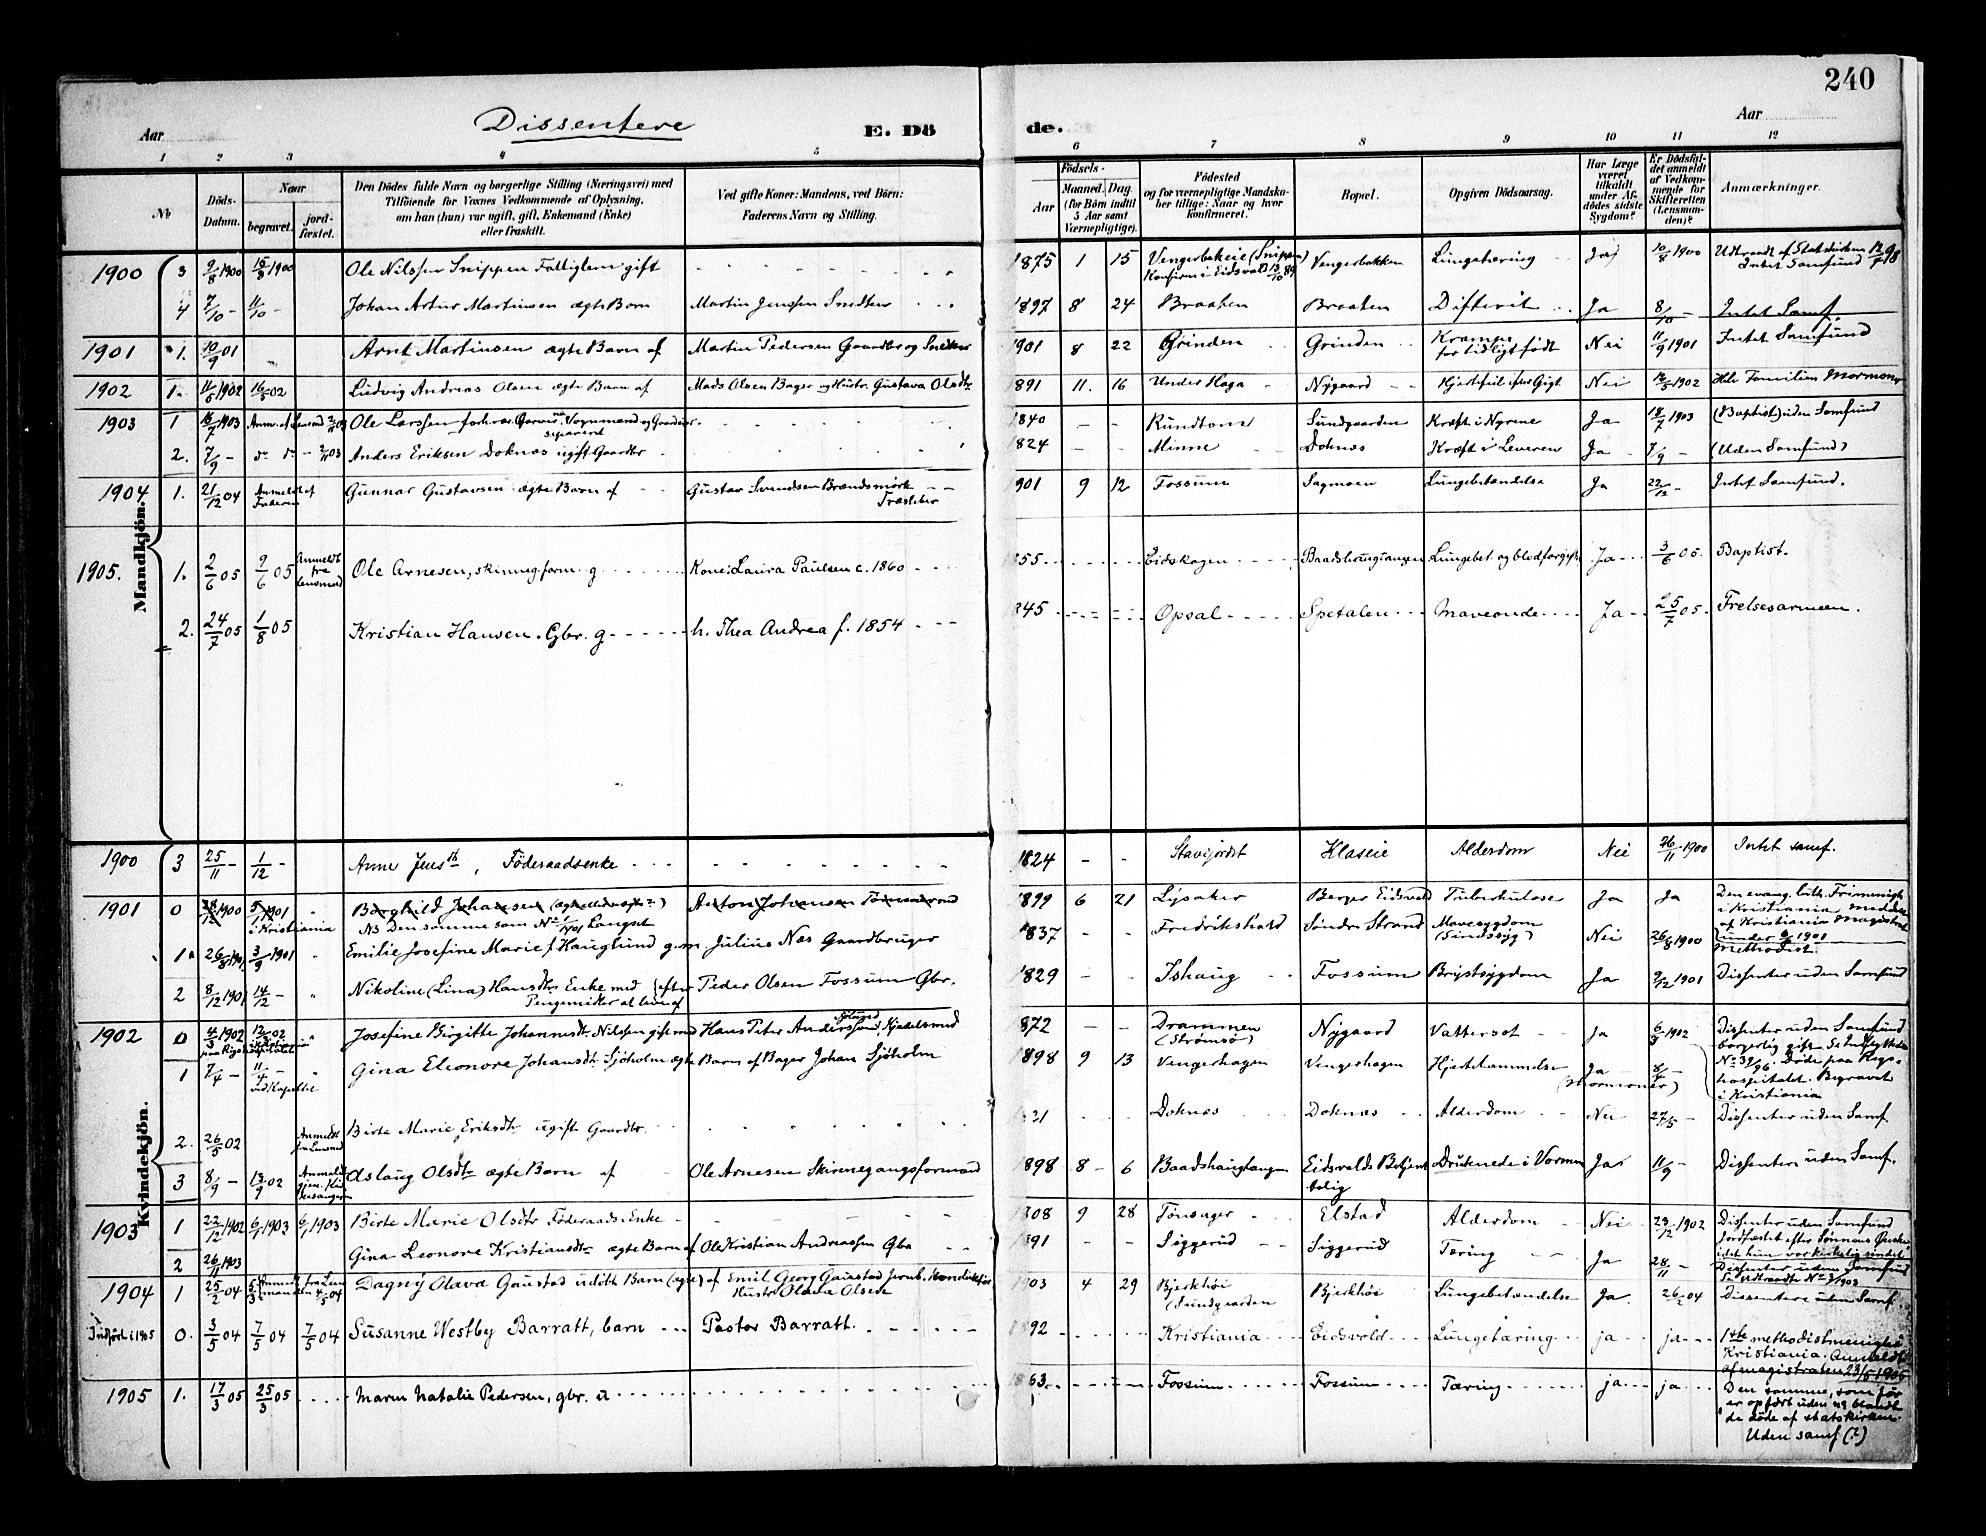 240
Aar Dissentere E. Dö de. Aar
1 2 3 4 5 6 7 8 9 10 11 12
No
Döds-Datum.
Naar begravet. jordfæstet.
Den Dödes fulde Navn og borgerlige Stilling (Næringsvei) med
Tilföiende for Voxnes Vedkommende af Oplysning,
om han (hun) var ugift, gift, Enkemand (Enke)
eller fraskilt.
Ved gifte Koner: Mandens, ved Börn:
Faderens Navn og Stilling.
Födsels-
Aar Maaned. (for Börn indtil 5 Aar samt Værnepligtige). Dag
Födested
og for værnepligtige Mandskaber tillige: Naar og hvor konfirmeret.
Bopæl.
Opgiven Dödsaarsag.
Har Læge været tilkaldt under Afdödes sidste Sygdom?
Er Dödsfaldet anmeldt af Vedkommende for Skifteretten (Lensmanden)?
Anmærkninger.
Mandkjön.
1900 3 9/8 1900 15/8 1900 Ole Nilssen Snippen Fattiglem gift 1875 1 15 Vengerbakeie (Snippen) Konfirm i Eidsvold Vengerbakken Lungetæring Ja 10/8 1900 Udtraadt af Statskirken Intet Samfund
4 7/10 - 11/10 - Johan Artur Martinsen ægte Barn Martin Jenssen Snedker 1897 8 24 Braaten Braaten Difterit Ja 8/10 - Intet Samf.
1901 1. 10/9 01 Arnt Martinsen ægte Barn af Martin Pedersen Gaardbr og Snedker 1901 8 22 Grinden Grinden Krampe for tidligt födt Nei 11/9 1901 Intet Samfund
1902 1. 11/5 1902 16/5 02 Ludvig Andreas Olsen ægte Barn af Mads Olsen Bager og Hustr. Gustava Olsdtr 891 11. 16 Under Haga Nygaard Hjertefeil efter Gigt Nei 12/5 1902 Hele Familien Mormoner
1903 1 16/7 1903 Anm. af Lensmd Ole Larssen forh.v. Garver, Vognmand og Gaardbr. separeret 1840 - - Rundtom Sundgaarden Kræft i Nyrene Ja 18/7 1903 (Baptist) uden Samfund
2. 7/9 - do do - 2/11 03 Anders Eriksen Doknæs ugift Gaardbr 824 - - Minne Doknæs Kræft i Leveren Ja 7/9 - (Uden Samfund)
1904 1. 21/12 04 Anmeldt af Faderen Gunnar Gustavsen ægte Barn af Gustav Svendsen Brændsmørk Træsliber 901 9 12 Fossum Sagmoen Lungebetændelse Ja 22/12 - Intet Samfund.
1905. 1. 2/6 05 9/6 05 Anmeldt fra Lensmd Ole Arnesen, skinneg.form. g Kone: Laura Paulsen c. 1860 855 Eidskogen Baadshaugtangen Lungebet. og blodforgift Ja 3/6 05. Baptist.
2. 24/7 05 1/8 05 Kristian Hansen. Gbr. g h. Thea Andrea f. 1854 845 Opsal Spetalen Maveonde Ja 25/7 05. Frelsesarmeen.
Kvindekjön.
1900 3 25/11 - 1/12 - Anne Jensdtr, Föderaadsenke 1824 - - Stavsjordet Klaseie Alderdom Nei 26/11 1900 Intet samf.
1901 0 28/12 1900 5/1 1901 i Kristiania Borghild Johansen Anton Johansen Tömmermand 1899 6 21 Lysaker Berger Eidsvold Tuberkulose Ja Ja Den evang. luth. Frimenigh. i Kristiania meddelt af Kristiania Magistrat under 6/2 1901
NB Den samme som No 1/1901 Langset
1 26/8 1901 3/9 1901 Emilie Josefine Marie f. Hauglund g.m. Julius Næs Gaardbruger 1837 - - Fredrikshald Söndre Strand Mavesygdom (Sindssyg) Nei 26/8 1900 Methodist.
2 8/12 1901 14/12 - Nikoline (Lina) Hansdtr Enke med (efter Peder Olsen Fossum Gbr. 1829 - - Ishaug Fossum Brystsygdom Ja 9/12 1901 Dissenter uden Samfund
Pengemidler at leve af
1902 0 4/3 1902 12/3 02 paa Rigshospitalet Josefine Birgitte Johannesdtr Nilssen gift med Hans Peter Anderssen, Kjedelsmed 872 - - Drammen (Strømsø) Nygaard Vattersot Ja 6/3 1902 Dissenter uden Samfund borgerlig gift. Se Udflyttede No 39/96. Døde paa Rigshospitalet. Begravet i Kristiania
1 7/4 - 11/4 - ved Kapellet Gina Eleonore Johansdtr Sjöholm ægte Barn af Bager Johan Sjöholm 1898 9 13 Vengerhagen Vengerhagen Hjertelammelse Ja 8/4 - (Mormoner)
2. 26/5 02 Anmeldt fra Lensmd Birte Marie Eriksdtr ugift Gaardbr. 821 Doknæs Doknæs Alderdom Nei 27/5 - Dissenter uden Samf.
3 8/9 - 13/9 02 Anmeldt gjen. Kirkesanger Aslaug Olsdtr ægte Barn af Ole Arnesen Skinnegangsformand 1898 8 - 6 Baadshaugtangen Eidsvolds Betjentbolig Druknede i Vormen Ja 11/9 - Dissentere uden Samf.
1903 1 22/12 1902 6/1 1903 6/1 1903 Birte Marie Olsdtr Föderaads-Enke 1808 9 28 Tönsager Elstad Alderdom Nei 23/12 1902 Dissenter uden Samfund Jordfæstet efter Sönnens Ønske idet hun var kirkelig sindet
2 26/11 1903 Gina Leonore Kristiansdtr ægte Barn af Ole Kristian Andreassen Gbr 891 Siggerud Siggerud Tæring Ja 28/11 - Dissenter uden Samfund Se Udtraadte No 3/1903
1904 1 25/2 04 5/3 Anmeldt fra Lensmanden 4/5 04 Dagny Olava Gaustad udöbt Barn (ægte) af Emil Georg Gaustad Jernb. Konduktör Hustr. Olava Olsen 1903 4 29 Bjerkhöi (Sundgaarden Bjerkhöi Lungebetændelse Ja. 26/2 04 Dissentere uden Samf.
Indført i 1905 0. 3/5 04 7/5 04 7/5 04 Susanne Westby Barratt, barn Pastor Barratt. 1892 Kristiania Eidsvold Lungetæring ja ja 1ste methodistmenighed Kristiania. Anmeldt af magistraten 23/5 1905
1905 1. 17/3 05 25/3 05 Maren Natalie Pedersen, gbr. u 1863. Fossum Fossum Tæring ja ja Den samme, som før er opført uden no blandt de døde af statskirken. Uden samf (?)